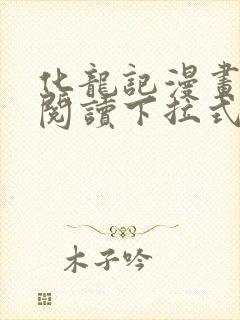 化龍記漫畫
閱讀下拉式
木子吟